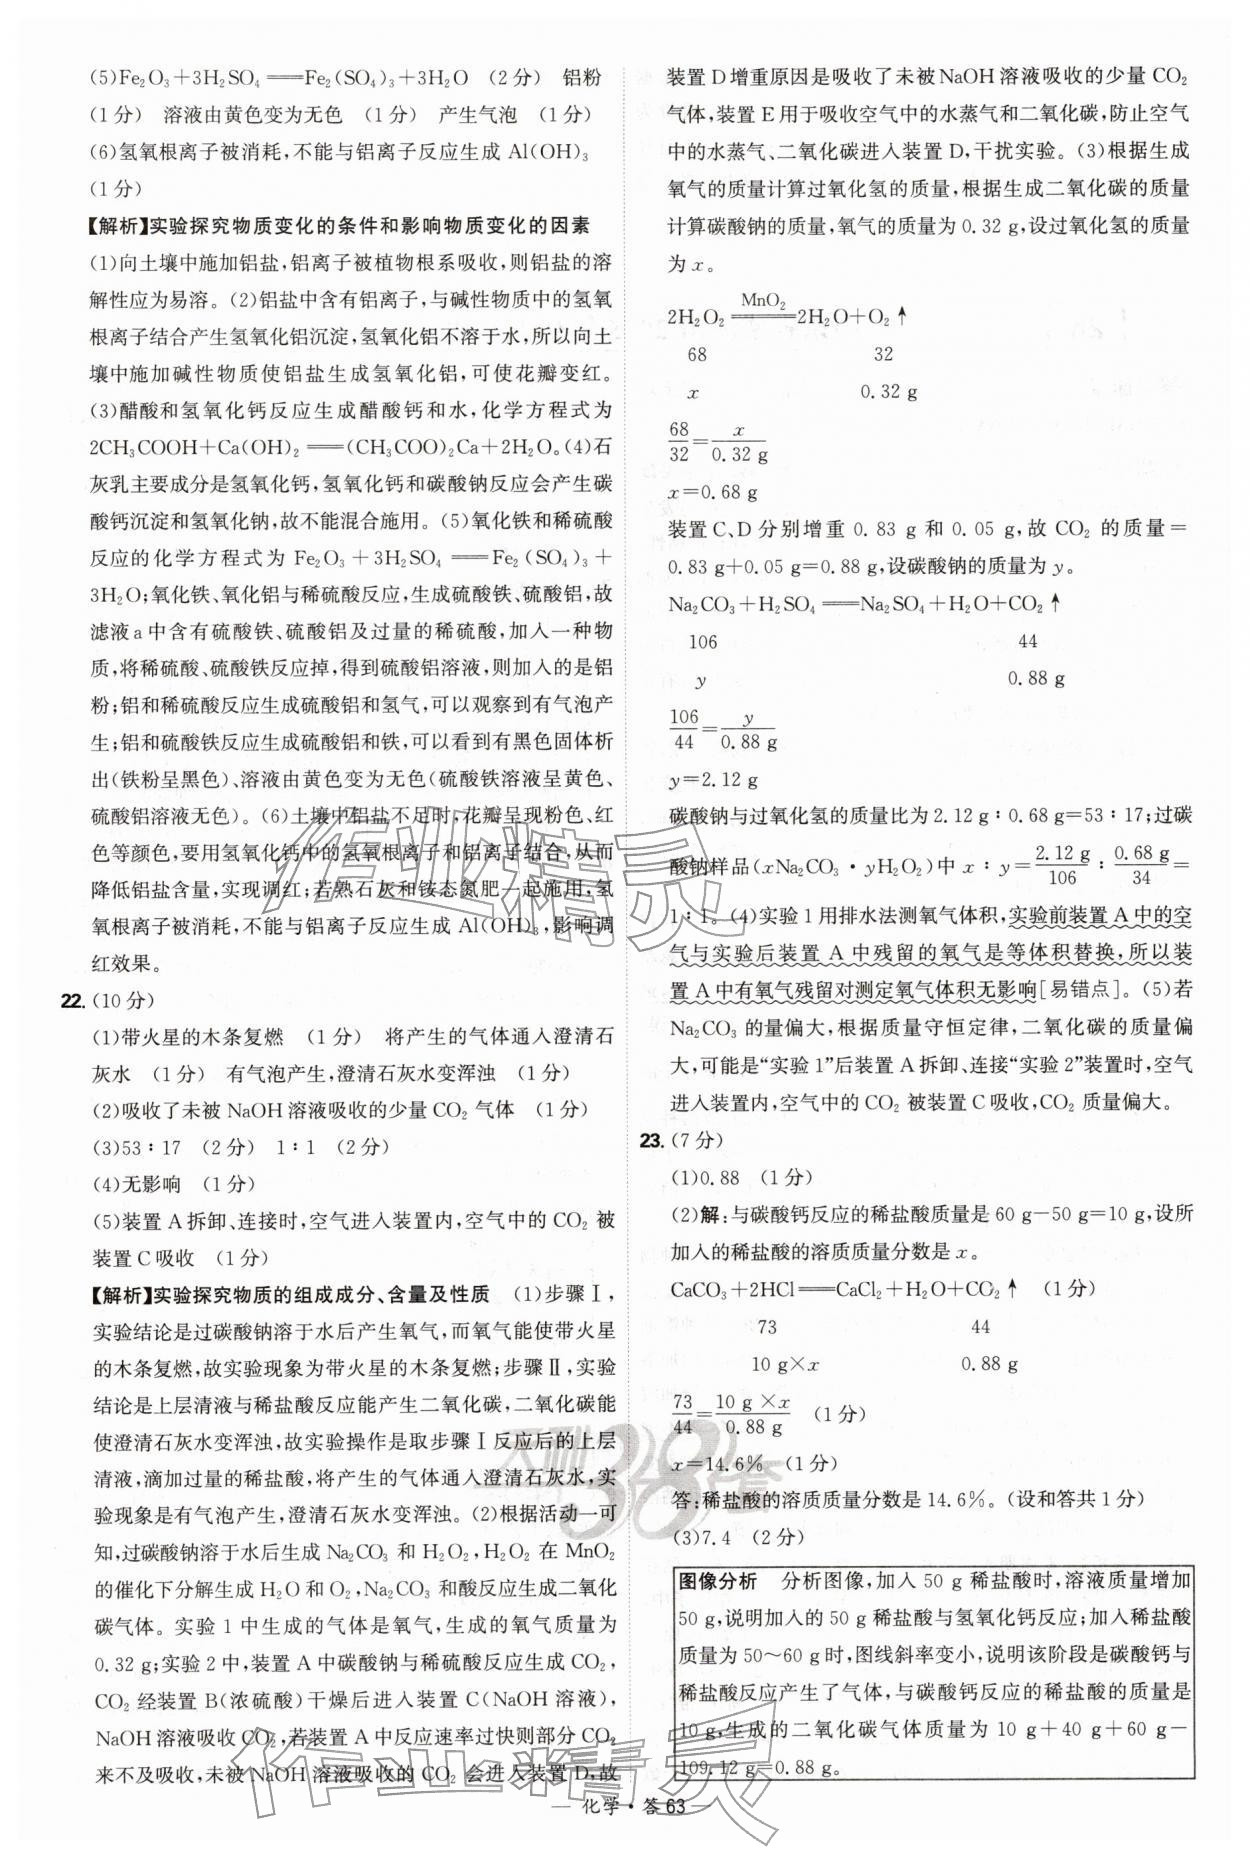 (5)Fe₂O₃+3H₂SO₄══Fe₂(SO₄)₃+3H₂O (2分) 铝粉
(1分) 溶液由黄色变为无色 (1分) 产生气泡 (1分)
(6)氢氧根离子被消耗,不能与铝离子反应生成 Al(OH)₃
(1分)
【解析】实验探究物质变化的条件和影响物质变化的因素
(1)向土壤中施加铝盐,铝离子被植物根系吸收,则铝盐的溶
解性应为易溶。(2)铝盐中含有铝离子,与碱性物质中的氢氧
根离子结合产生氢氧化铝沉淀,氢氧化铝不溶于水,所以向土
壤中施加碱性物质使铝盐生成氢氧化铝,可使花瓣变红。
(3)醋酸和氢氧化钙反应生成醋酸钙和水,化学方程式为
2CH₃COOH+Ca(OH)₂══(CH₃COO)₂Ca+2H₂O。(4)石
灰乳主要成分是氢氧化钙,氢氧化钙和碳酸钠反应会产生碳
酸钙沉淀和氢氧化钠,故不能混合施用。(5)氧化铁和稀硫酸
反应的化学方程式为 Fe₂O₃+3H₂SO₄══Fe₂(SO₄)₃+
3H₂O;氧化铁、氧化铝与稀硫酸反应,生成硫酸铁、硫酸铝,故
滤液a中含有硫酸铁、硫酸铝及过量的稀硫酸,加入一种物
质,将稀硫酸、硫酸铁反应掉,得到硫酸铝溶液,则加入的是铝
粉;铝和稀硫酸反应生成硫酸铝和氢气,可以观察到有气泡产
生;铝和硫酸铁反应生成硫酸铝和铁,可以看到有黑色固体析
出(铁粉呈黑色)、溶液由黄色变为无色(硫酸铁溶液呈黄色、
硫酸铝溶液无色)。(6)土壤中铝盐不足时,花瓣呈现粉色、红
色等颜色,要用氢氧化钙中的氢氧根离子和铝离子结合,从而
降低铝盐含量,实现调红;若熟石灰和铵态氮肥一起施用,氢
氧根离子被消耗,不能与铝离子反应生成 Al(OH)₃,影响调
红效果。
22.(10分)
(1)带火星的木条复燃 (1分) 将产生的气体通入澄清石
灰水 (1分) 有气泡产生,澄清石灰水变浑浊 (1分)
(2)吸收了未被NaOH溶液吸收的少量CO₂气体 (1分)
(3)53∶17 (2分) 1∶1 (2分)
(4)无影响 (1分)
(5)装置A拆卸、连接时,空气进入装置内,空气中的CO₂被
装置C吸收 (1分)
【解析】实验探究物质的组成成分、含量及性质 (1)步骤Ⅰ,
实验结论是过碳酸钠溶于水后产生氧气,而氧气能使带火星
的木条复燃,故实验现象为带火星的木条复燃;步骤Ⅱ,实验
结论是上层清液与稀盐酸反应能产生二氧化碳,二氧化碳能
使澄清石灰水变浑浊,故实验操作是取步骤Ⅰ反应后的上层
清液,滴加过量的稀盐酸,将产生的气体通入澄清石灰水,实
验现象是有气泡产生,澄清石灰水变浑浊。(2)根据活动一可
知,过碳酸钠溶于水后生成 Na₂CO₃ 和 H₂O₂,H₂O₂ 在 MnO₂
的催化下分解生成 H₂O 和 O₂,Na₂CO₃ 和酸反应生成二氧化
碳气体。实验1中生成的气体是氧气,生成的氧气质量为
0.32 g;实验2中,装置A中碳酸钠与稀硫酸反应生成CO₂,
CO₂ 经装置B(浓硫酸)干燥后进入装置C(NaOH溶液),
NaOH溶液吸收CO₂,若装置A中反应速率过快则部分CO₂
来不及吸收,未被NaOH溶液吸收的CO₂会进入装置D,故
装置D增重原因是吸收了未被NaOH溶液吸收的少量CO₂
气体,装置E用于吸收空气中的水蒸气和二氧化碳,防止空气
中的水蒸气、二氧化碳进入装置D,干扰实验。(3)根据生成
氧气的质量计算过氧化氢的质量,根据生成二氧化碳的质量
计算碳酸钠的质量,氧气的质量为0.32 g,设过氧化氢的质量
为x。
2H₂O₂ ══MnO₂══ 2H₂O+O₂↑
68 32
x 0.32 g
68/32=x/0.32 g
x=0.68 g
装置C、D分别增重 0.83 g 和 0.05 g,故 CO₂ 的质量=
0.83 g+0.05 g=0.88 g,设碳酸钠的质量为y。
Na₂CO₃+H₂SO₄══Na₂SO₄+H₂O+CO₂↑
106 44
y 0.88 g
106/44=y/0.88 g
y=2.12 g
碳酸钠与过氧化氢的质量比为2.12 g∶0.68 g=53∶17;过碳
酸钠样品(xNa₂CO₃·yH₂O₂)中 x∶y=2.12 g/106∶0.68 g/34=
1∶1。(4)实验1用排水法测氧气体积,实验前装置A中的空
气与实验后装置A中残留的氧气是等体积替换,所以装
置A中有氧气残留对测定氧气体积无影响[易错点]。(5)若
Na₂CO₃的量偏大,根据质量守恒定律,二氧化碳的质量偏
大,可能是“实验1”后装置A拆卸、连接“实验2”装置时,空气
进入装置内,空气中的CO₂被装置C吸收,CO₂质量偏大。
23.(7分)
(1)0.88 (1分)
(2)解:与碳酸钙反应的稀盐酸质量是60 g-50 g=10 g,设所
加入的稀盐酸的溶质质量分数是x。
CaCO₃+2HCl══CaCl₂+H₂O+CO₂↑ (1分)
73 44
10 g×x 0.88 g
73/44=10 g×x/0.88 g (1分)
x=14.6% (1分)
答:稀盐酸的溶质质量分数是14.6%。(设和答共1分)
(3)7.4 (2分)
图像分析 分析图像,加入50 g稀盐酸时,溶液质量增加
50 g,说明加入的50 g稀盐酸与氢氧化钙反应;加入稀盐酸
质量为50~60 g时,图线斜率变小,说明该阶段是碳酸钙与
稀盐酸反应产生了气体,与碳酸钙反应的稀盐酸的质量是
10 g,生成的二氧化碳气体质量为 10 g+40 g+60 g-
109.12 g=0.88 g。
— 化学·答63 —
作业精灵
天利38套
作业精灵